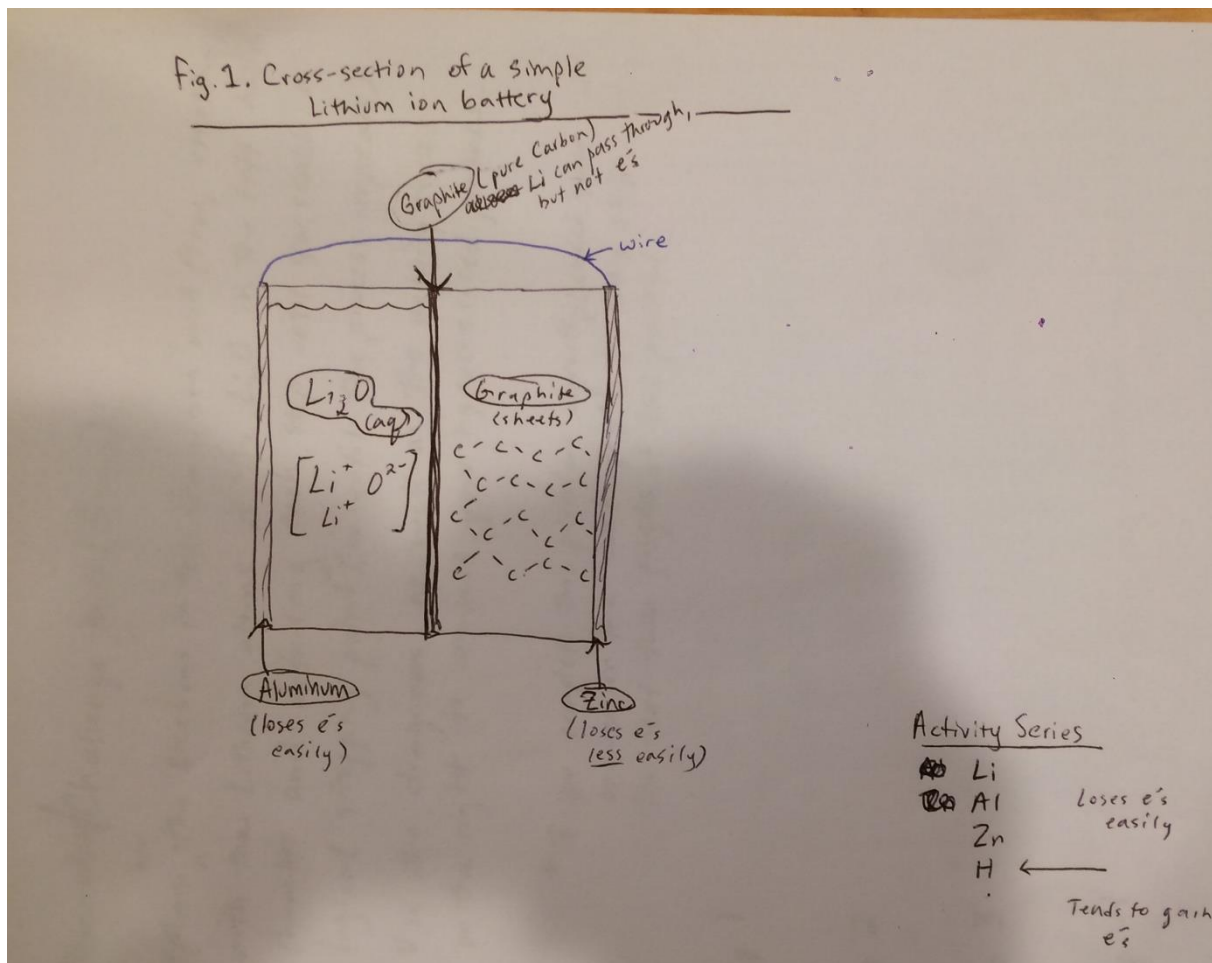 Fig. 1. Cross-section of a simple
Lithium ion battery
Graphite (pure Carbon)
Li can pass through,
but not e⁻s
wire
Li₂O
(aq)
Graphite
(sheets)
[Li⁺ O²⁻]
Li⁺
C C C C
C C C C
C C C
C C
C C C C
Aluminum
(loses e⁻s
easily)
Zinc
(loses e⁻s
less easily)
Activity Series
Li
Al
Loses e⁻s
easily
Zn
H
Tends to gain
e⁻s